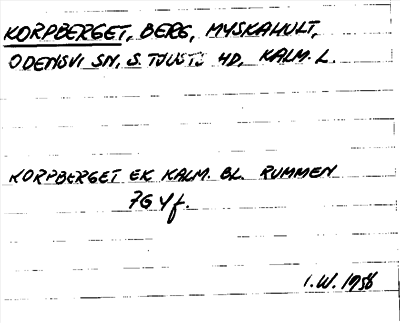 KORPBERGET, BERG, MYSKAHULT,
ODENSVI SN, S. TJUSTS HD, KALM. L.
KORPBERGET EK KALM. BL. RUMMEN
7G4f.
I.W. 1956